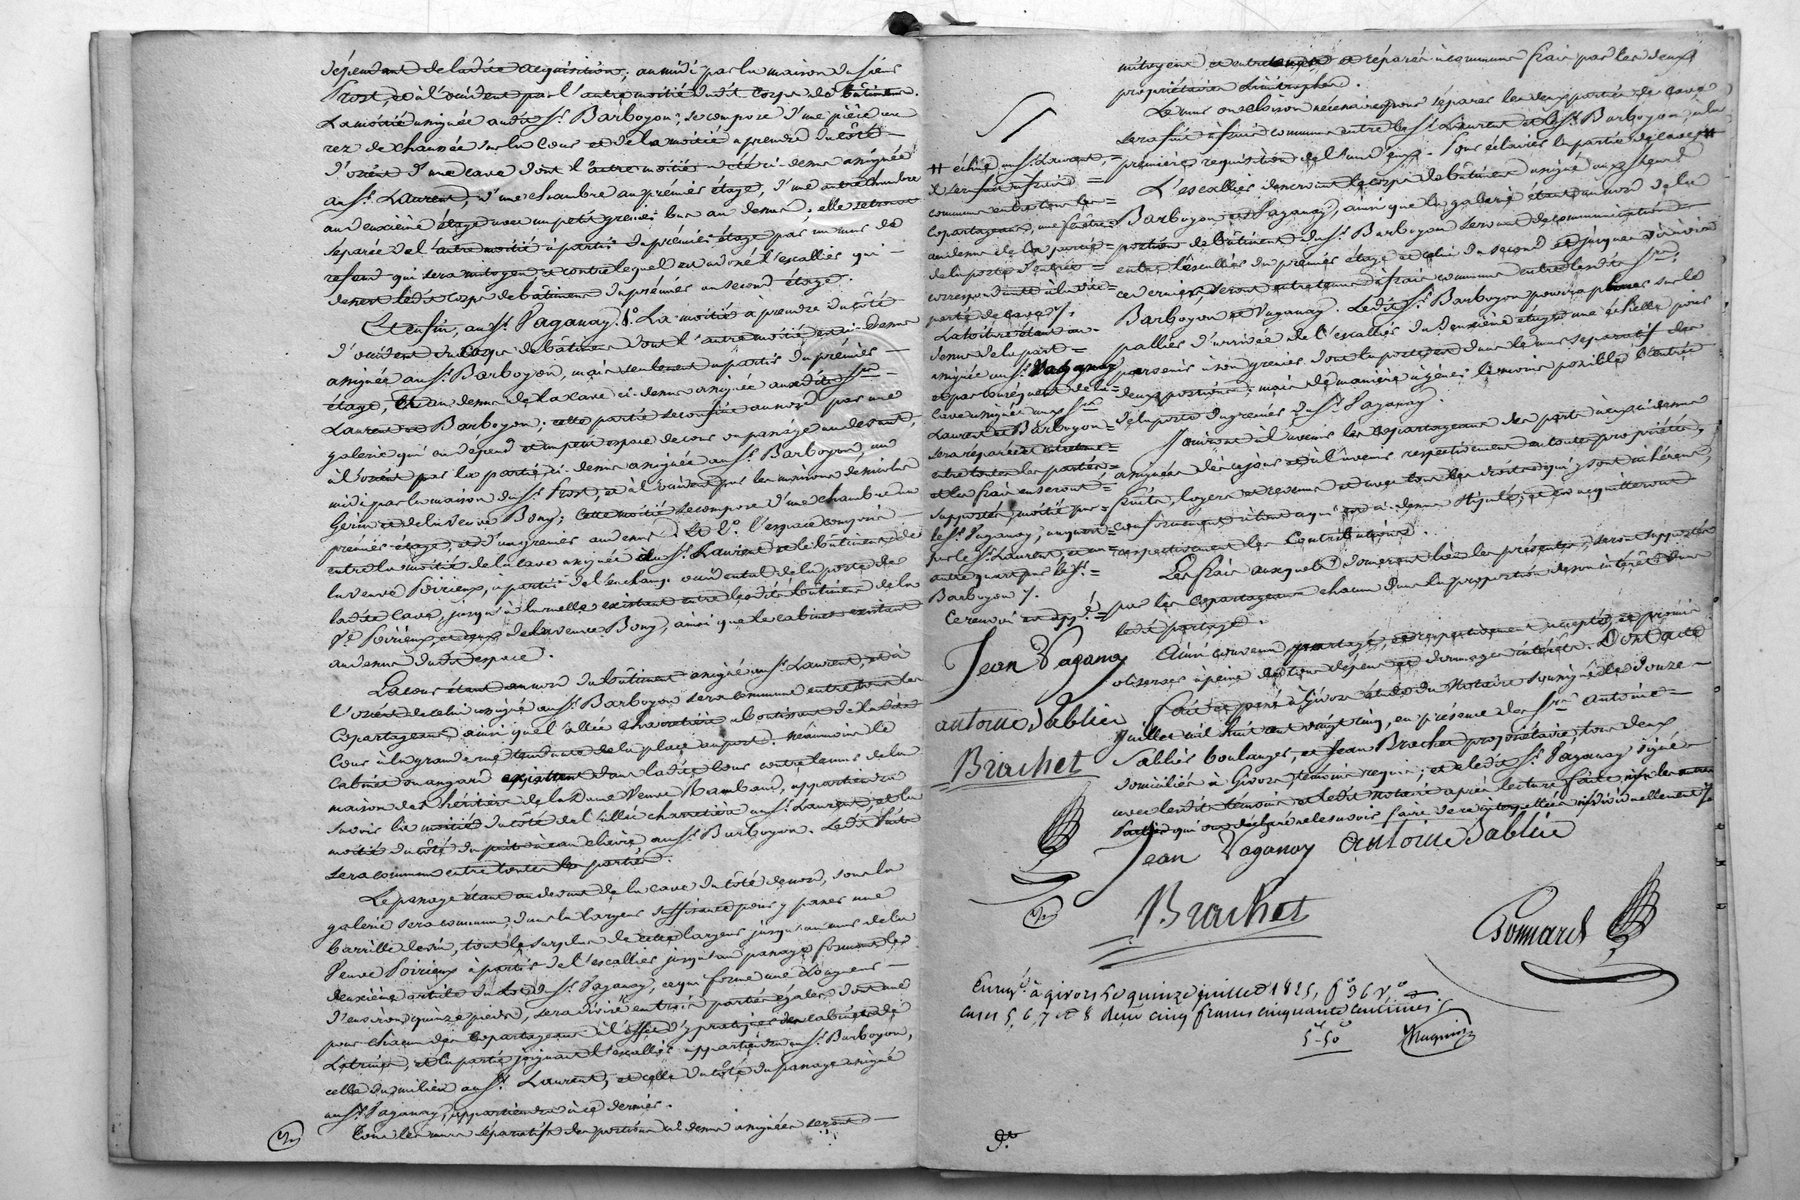 dépendant de ladite acquisition; au midi par la maison du sieur
Frost, et à l'occident par l'autre moitié dudit corps de bâtiment.
La moitié assignée audit Sr. Barboyon, se compose d'une pièce au
rez de chaussée sur la Cour et de la moitié à prendre du côté
d'orient d'une cave dont l'autre moitié a été ci-dessus assignée
au Sr. Laurent, d'une chambre au premier étage, d'une autre chambre
au deuxième étage avec un petit grenier bas au dessus; elle
séparée de l'autre moitié à partir du premier étage par un mur de
refend qui sera mitoyen et contre lequel est adossé l'escallier qui
dessert ledit corps de bâtiment du premier au second étage.
Et enfin, au Sr. Paganay. 1o. La moitié à prendre du côté
d'occident du corps de bâtiment dont l'autre moitié est ci-dessus
assignée au Sr. Barboyon, mais seulement à partir du premier
étage, et au dessus de la cave ci-dessus assignée auxdits Srs.
Laurent et Barboyon; cette partie se confine au nord par une
galerie qui en dépend et un petit espace de cour ou passage au devant,
à l'orient par la partie ci-dessus assignée au Sr. Barboyon, au
midi par la maison du Sr. Frost, et à l'occident par les maisons de
Gerin et de la veuve Bony; cette moitié se compose d'une chambre au
premier étage, et d'un grenier au dessus. Et 2o. l'espace compris
entre la moitié de la cave assignée au Sr. Laurent et le bâtiment de
la veuve Poirieux, à partir de l'enchant occidental de la porte de
ladite cave, jusqu'à la ruelle existant entre lesdits bâtiments de la
Ve. Poirieux, et ceux de la veuve Bony, ainsi que le cabinet existant
au dessus dudit espace.
La cour étant au nord du bâtiment assigné au Sr. Laurent, et à
l'orient de celui assigné au Sr. Barboyon sera commune entre tous les
copartageans ainsi que l'allée charretière aboutissant de ladite
Cour à la grande rue tendante de la place au port. Néanmoins le
cabinet ou angard existant dans ladite Cour contre le mur de la
maison des héritiers de la Dame Veuve Rambaud, appartiendra
savoir la moitié du côté de l'allée charretière au Sr. Laurent, et la
moitié du côté du puits à eau claire au Sr. Barboyon. Ledit Puits
sera commun entre toutes les parties.
Le passage étant au devant de la cave du côté de nord, sous la
galerie sera commun; dans la largeur suffisante pour y passer une
barrille de vin, tout le surplus de cette largeur jusqu'au mur de la
Veuve Poirieux à partir de l'escallier jusqu'au passage formant le
deuxième article du lot du Sr. Paganay, ce qui forme une longueur
d'environ quinze pieds, sera divisé en trois parties égales dont une
pour chacun des Copartageans à l'effet d'y pratiquer des cabinets de
Latrines, et la partie joignant l'escallier appartiendra au Sr. Barboyon,
celle du milieu au Sr. Laurent, et celle du côté du passage assigné
au Sr. Paganay, appartiendra à ce dernier.
Tous les murs séparatifs des portions ci-dessus assignées seront
mitoyens et entretenus et réparés à communs frais par les deux
propriétaires limitrophes.
Le mur ou cloison nécessaire pour séparer les deux parties de cave
sera fait à frais communs entre les Srs. Laurent et Barboyon, à la
première réquisition de l'un d'eux. Pour éclairer la partie de cave #
L'escallier desservant le corps de bâtiment assigné aux sieurs
Barboyon et Paganay, ainsi que la galerie étant au nord de la
portion de bâtiment du Sr. Barboyon servant de communication
entre l'escallier du premier étage et celui du second et jusques
ce dernier, seront entretenus à frais communs entre lesdits Srs.
Barboyon et Paganay. Ledit Sr. Barboyon pourra placer sur le
pallier d'arrivée de l'escallier du deuxième étage une échelle pour
parvenir à son grenier dont la porte est dans le mur séparatif des
deux portions; mais de manière à gêner le moins possible l'entrée
de la porte du grenier du Sr. Paganay.
Jouiront à l'avenir les copartageans des parts à eux ci-dessus
assignées dès ce jour et à l'avenir respectivement en toute propriété,
fruits, loyers et revenus et avec tous les droits qui y sont inhérens,
conformément à tout ce qui est ci-dessus stipulé, et en acquitteront
respectivement les Contributions.
Les frais auxquels donneront lieu les présentes, seront supportés
par les Copartageans chacun dans la proportion de son intérêt dans
ledit partage.
Ainsi convenu, partagé, et respectivement accepté, et promis
observer à peine de tous dépens et dommages intérêts. Dont acte
Fait et passé à Givors étude du Notaire soussigné le douze
Juillet mil huit cent vingt cinq, en présence des Srs. Antoine
Sablier boulanger, et Jean Brachet propriétaire, tous deux
domiciliés à Givors, témoins requis; et ledit Sr. Paganay signé
avec lesdits témoins et ledit notaire après lecture faite, non les autres
parties qui ont déclaré ne le savoir faire de ce interpellées individuellement
# échue au Sr. Laurent,
il sera fait à frais
communs entre tous les
copartageans, une fenêtre
au dessus de la partie
de la porte d'entrée
correspondante à ladite
partie de cave /.
La toiture étant au
dessus de la part
assignée au Sr. Paganay
et par conséquent de la
cave assignée aux Srs.
Laurent et Barboyon
sera réparée et entretenue
entre toutes les parties
et les frais en seront
supportés, moitié par
le Sr. Paganay, un quart
par le Sr. Laurent, et un
autre quart par le Sr.
Barboyon /.
Ce renvoi est app.é
Jean Paganay
antoine Sablier
Brachet
Jean Paganay antoine Sablier
Brachet
Ponnard
Enreg.é à givors le quinze juillet 1825, fo 36 vo
cases 5, 6, 7 et 8 reçu cinq francs cinquante centimes.
5-50